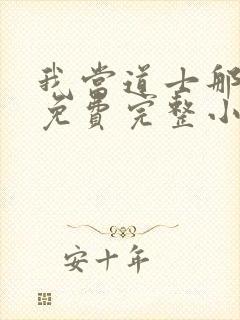 我当道士那
免费完整小
安十年